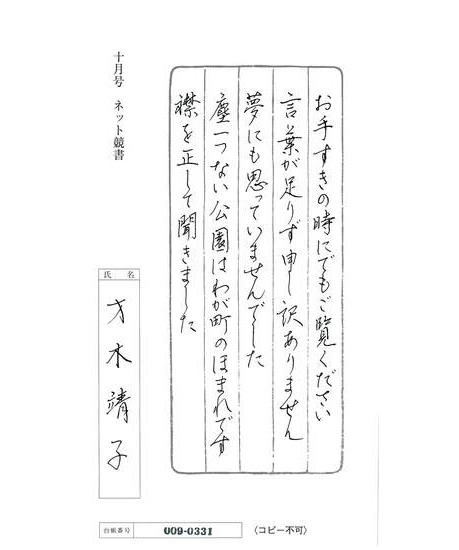 お手すきの時にでもご覧ください
言葉が足りず申し訳ありません
夢にも思っていませんでした
塵一つない公園はわが町のほまれです
襟を正して聞きました
十月号 ネット競書
氏名
才木靖子
台帳番号 009-0331 (コピー不可)